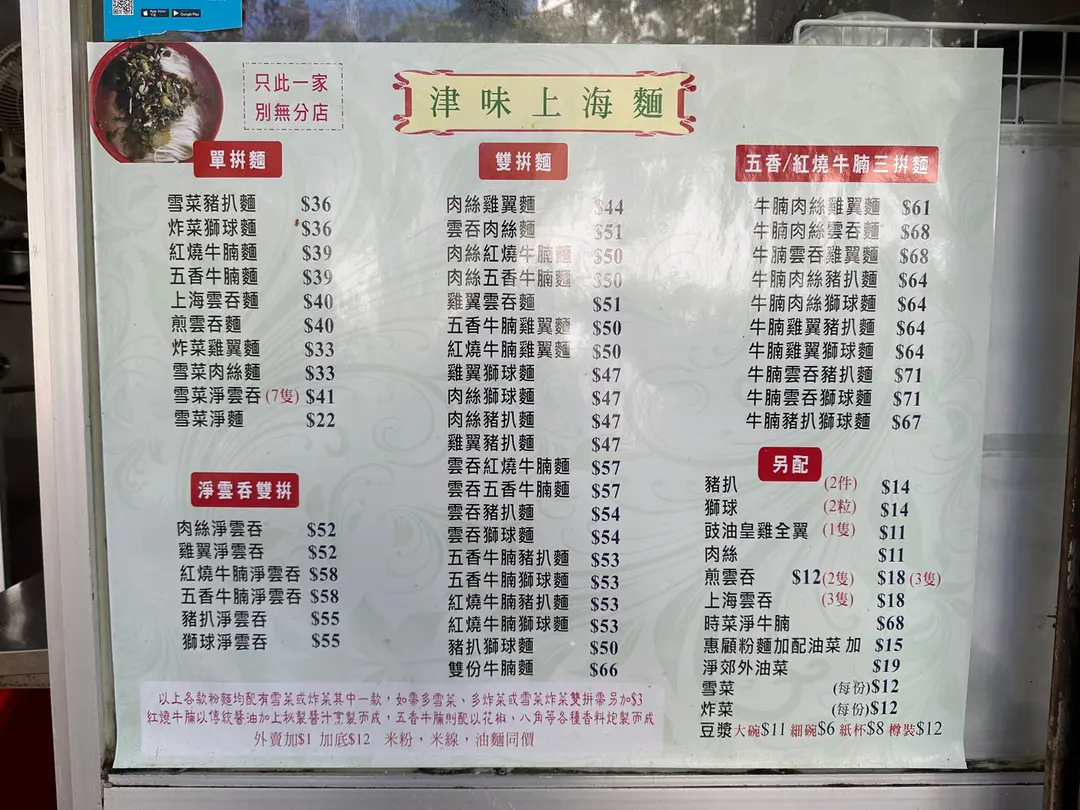 App Store
Google Play
只此一家
別無分店
津味上海麵
單拼麵
雪菜豬扒麵 $36
炸菜獅球麵 $36
紅燒牛腩麵 $39
五香牛腩麵 $39
上海雲吞麵 $40
煎雲吞麵 $40
炸菜雞翼麵 $33
雪菜肉絲麵 $33
雪菜淨雲吞(7隻) $41
雪菜淨麵 $22
淨雲吞雙拼
肉絲淨雲吞 $52
雞翼淨雲吞 $52
紅燒牛腩淨雲吞 $58
五香牛腩淨雲吞 $58
豬扒淨雲吞 $55
獅球淨雲吞 $55
雙拼麵
肉絲雞翼麵 $44
雲吞肉絲麵 $51
肉絲紅燒牛腩麵 $50
肉絲五香牛腩麵 $50
雞翼雲吞麵 $51
五香牛腩雞翼麵 $50
紅燒牛腩雞翼麵 $50
雞翼獅球麵 $47
肉絲獅球麵 $47
肉絲豬扒麵 $47
雞翼豬扒麵 $47
雲吞紅燒牛腩麵 $57
雲吞五香牛腩麵 $57
雲吞豬扒麵 $54
雲吞獅球麵 $54
五香牛腩豬扒麵 $53
五香牛腩獅球麵 $53
紅燒牛腩豬扒麵 $53
紅燒牛腩獅球麵 $53
豬扒獅球麵 $50
雙份牛腩麵 $66
五香/紅燒牛腩三拼麵
牛腩肉絲雞翼麵 $61
牛腩肉絲雲吞麵 $68
牛腩雲吞雞翼麵 $68
牛腩肉絲豬扒麵 $64
牛腩肉絲獅球麵 $64
牛腩雞翼豬扒麵 $64
牛腩雞翼獅球麵 $64
牛腩雲吞豬扒麵 $71
牛腩雲吞獅球麵 $71
牛腩豬扒獅球麵 $67
另配
豬扒 (2件) $14
獅球 (2粒) $14
豉油皇雞全翼 (1隻) $11
肉絲 $11
煎雲吞 $12(2隻) $18(3隻)
上海雲吞 (3隻) $18
時菜淨牛腩 $68
惠顧粉麵加配油菜加 $15
淨郊外油菜 $19
雪菜 (每份)$12
炸菜 (每份)$12
豆漿大碗$11 細碗$6 紙杯$8 樽裝$12
以上各款粉麵均配有雪菜或炸菜其中一款，如需多雪菜、多炸菜或雪菜炸菜雙拼需另加$3
紅燒牛腩以傳統醬油加上秘製醬汁烹製而成，五香牛腩則配以花椒、八角等各種香料炮製而成
外賣加$1 加底$12 米粉，米線，油麵同價